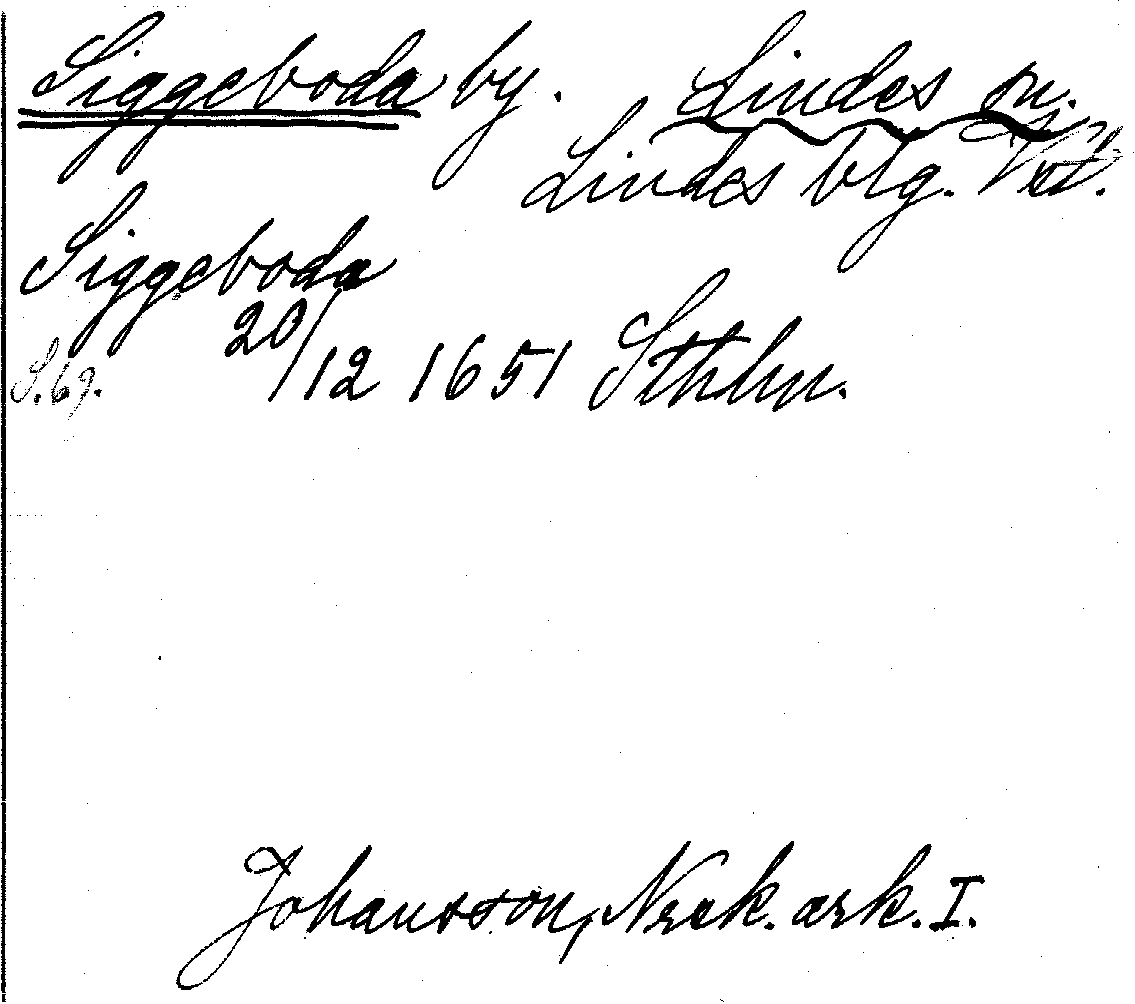 Siggeboda by. Lindes sn.
Lindes blg. Vstl.
Siggeboda
S. 69. 20/12 1651 Sthlm.
Johansson, Nrck. ark. I.